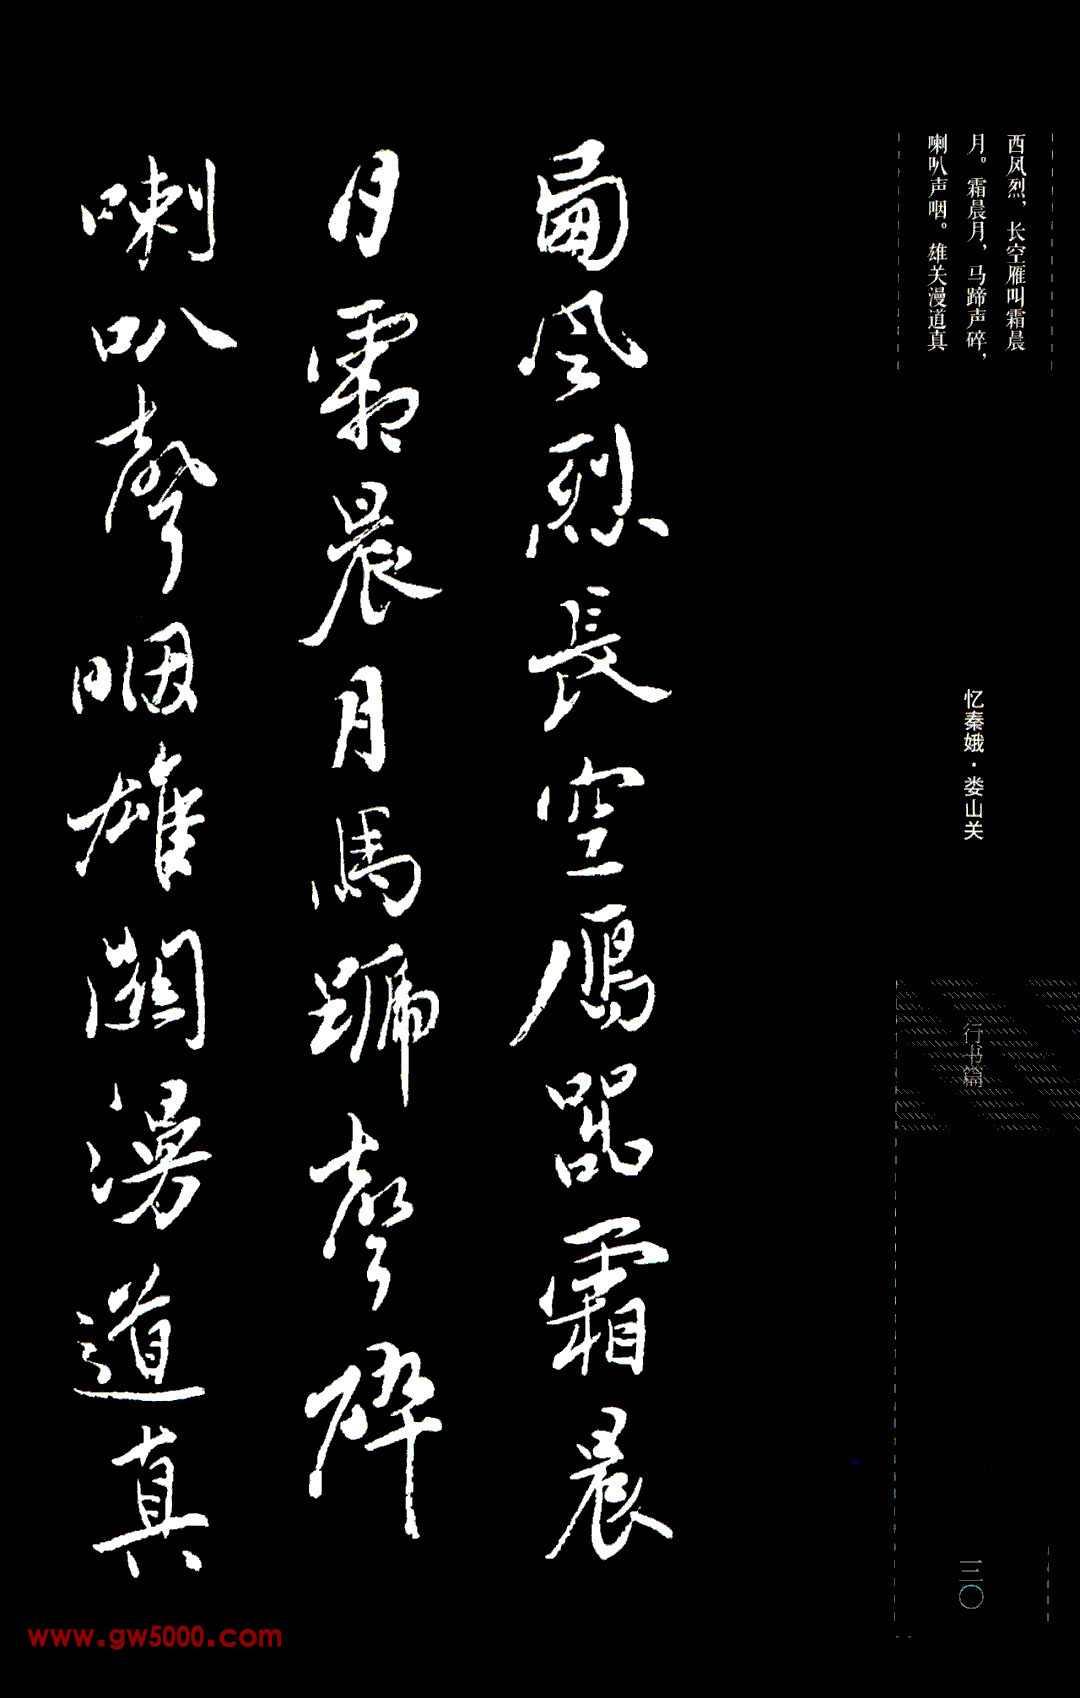 西风烈，长空雁叫霜晨
月。霜晨月，马蹄声碎，
喇叭声咽。雄关漫道真
忆秦娥·娄山关
行书篇
三〇
西風烈長空鴈叫霜晨
月霜晨月馬蹄聲碎
喇叭聲咽雄關漫道真
www.gw5000.com